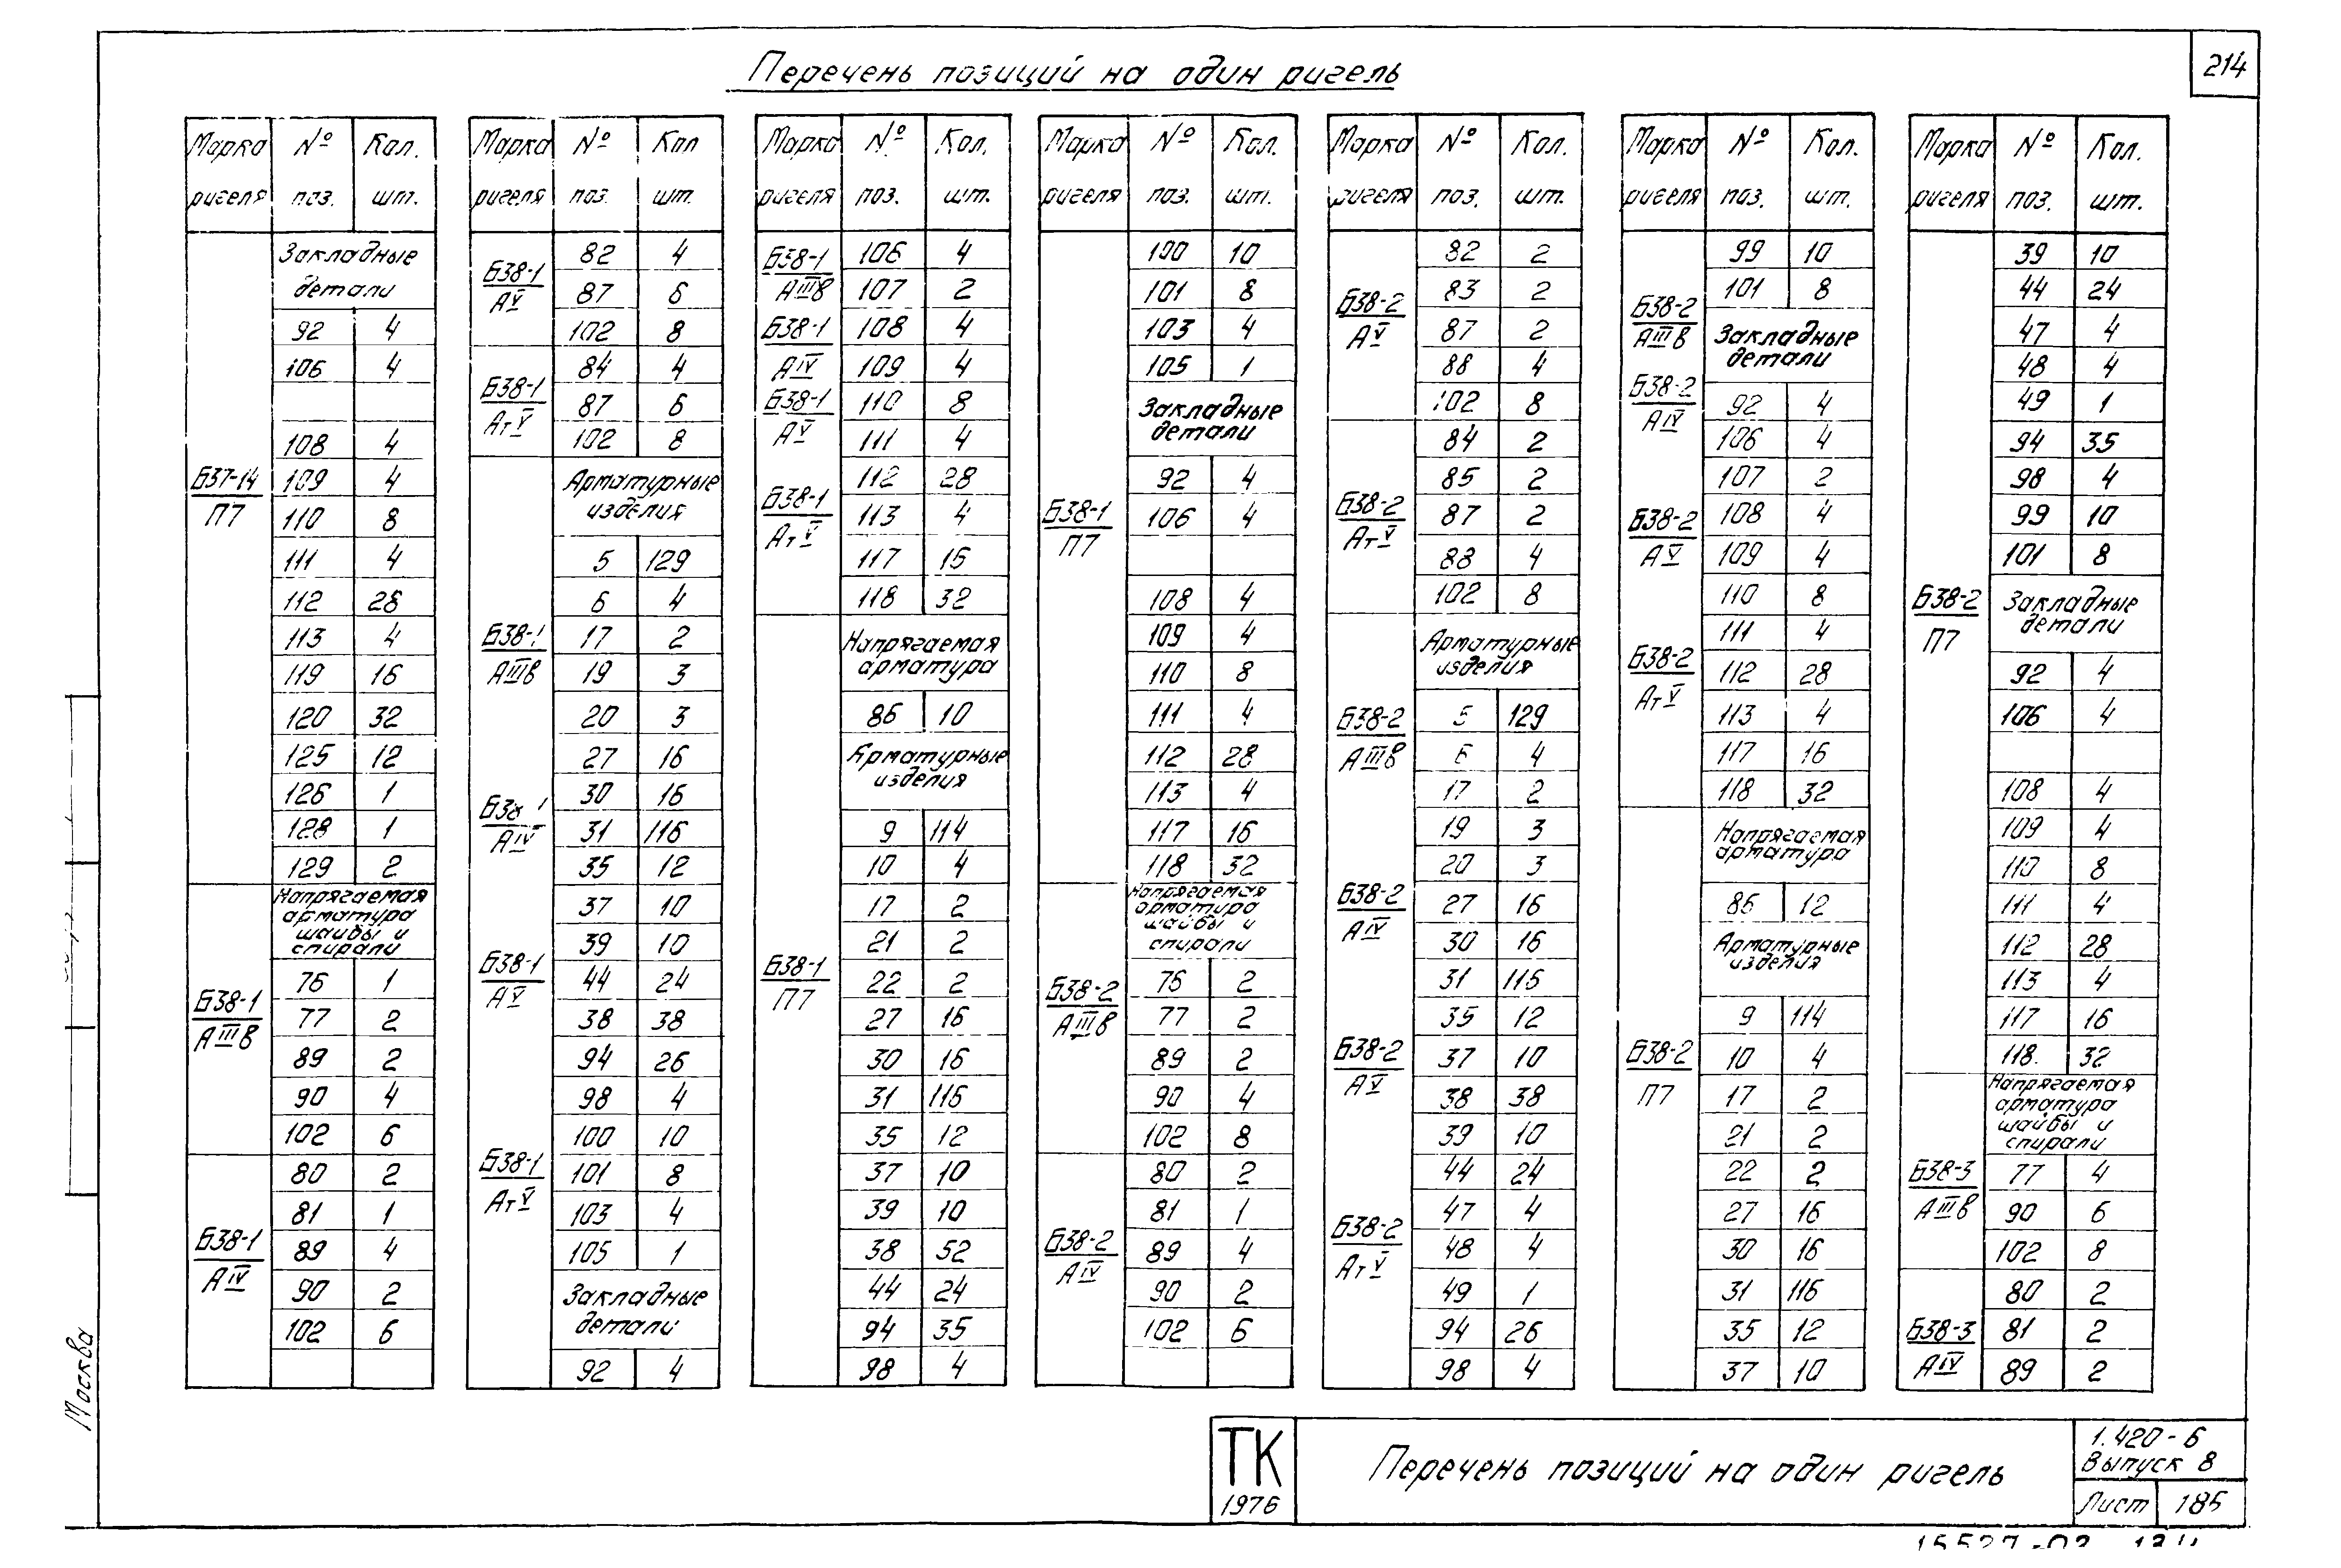 214
Перечень позиций на один ригель
Марка ригеля № поз. Кол. шт.
Закладные детали
Б37-14 П7
92 4
106 4
108 4
109 4
110 8
111 4
112 28
113 4
119 16
120 32
125 12
126 1
128 1
129 2
Напрягаемая арматура шайбы и спирали
Б38-1 АIIIв
76 1
77 2
89 2
90 4
102 6
Б38-1 АIV
80 2
81 1
89 4
90 2
102 6
Марка ригеля № поз. Кол шт.
Б38-1 АV
82 4
87 6
102 8
Б38-1 АтV
84 4
87 6
102 8
Арматурные изделия
Б38-1 АIIIв
Б38-1 АIV
Б38-1 АV
Б38-1 АтV
5 129
6 4
17 2
19 3
20 3
27 16
30 16
31 116
35 12
37 10
39 10
44 24
38 38
94 26
98 4
100 10
101 8
103 4
105 1
Закладные детали
92 4
Марка ригеля № поз. Кол. шт.
Б38-1 АIIIв
Б38-1 АIV
Б38-1 АV
Б38-1 АтV
106 4
107 2
108 4
109 4
110 8
111 4
112 28
113 4
117 16
118 32
Напрягаемая арматура
Б38-1 П7
86 10
Арматурные изделия
9 114
10 4
17 2
21 2
22 2
27 16
30 16
31 116
35 12
37 10
39 10
38 52
44 24
94 35
98 4
Марка ригеля № поз. Кол. шт.
Б38-1 П7
100 10
101 8
103 4
105 1
Закладные детали
92 4
106 4
108 4
109 4
110 8
111 4
112 28
113 4
117 16
118 32
Напрягаемая арматура шайбы и спирали
Б38-2 АIIIв
76 2
77 2
89 2
90 4
102 8
Б38-2 АIV
80 2
81 1
89 4
90 2
102 6
Марка ригеля № поз. Кол. шт.
Б38-2 АV
82 2
83 2
87 2
88 4
102 8
Б38-2 АтV
84 2
85 2
87 2
88 4
102 8
Арматурные изделия
Б38-2 АIIIв
Б38-2 АIV
Б38-2 АV
Б38-2 АтV
5 129
6 4
17 2
19 3
20 3
27 16
30 16
31 116
35 12
37 10
38 38
39 10
44 24
47 4
48 4
49 1
94 26
98 4
Марка ригеля № поз. Кол. шт.
Б38-2 АIIIв
Б38-2 АIV
Б38-2 АV
Б38-2 АтV
99 10
101 8
Закладные детали
92 4
106 4
107 2
108 4
109 4
110 8
111 4
112 28
113 4
117 16
118 32
Напрягаемая арматура
Б38-2 П7
86 12
Арматурные изделия
9 114
10 4
17 2
21 2
22 2
27 16
30 16
31 116
35 12
37 10
Марка ригеля № поз. Кол. шт.
Б38-2 П7
39 10
44 24
47 4
48 4
49 1
94 35
98 4
99 10
101 8
Закладные детали
92 4
106 4
108 4
109 4
110 8
111 4
112 28
113 4
117 16
118 32
Напрягаемая арматура шайбы и спирали
Б38-3 АIIIв
77 4
90 6
102 8
Б38-3 АIV
80 2
81 2
89 2
Москва
ТК 1976
Перечень позиций на один ригель
1.420-6
Выпуск 8
Лист 185